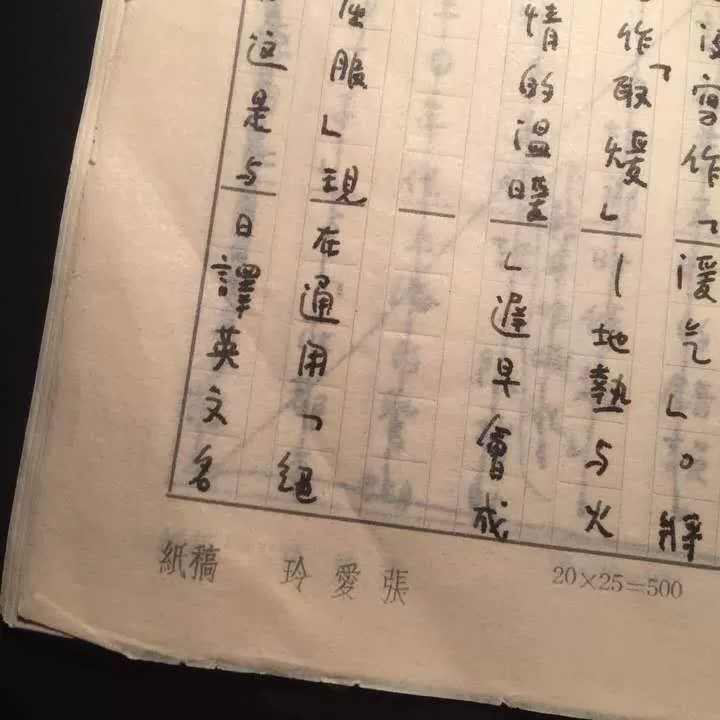 作「暖气」。將
作「取煖」—地熱与火
情的溫暖」遲早會成
服」現在通用「絕
這是与日譯英文名
張愛玲 稿紙
20×25=500